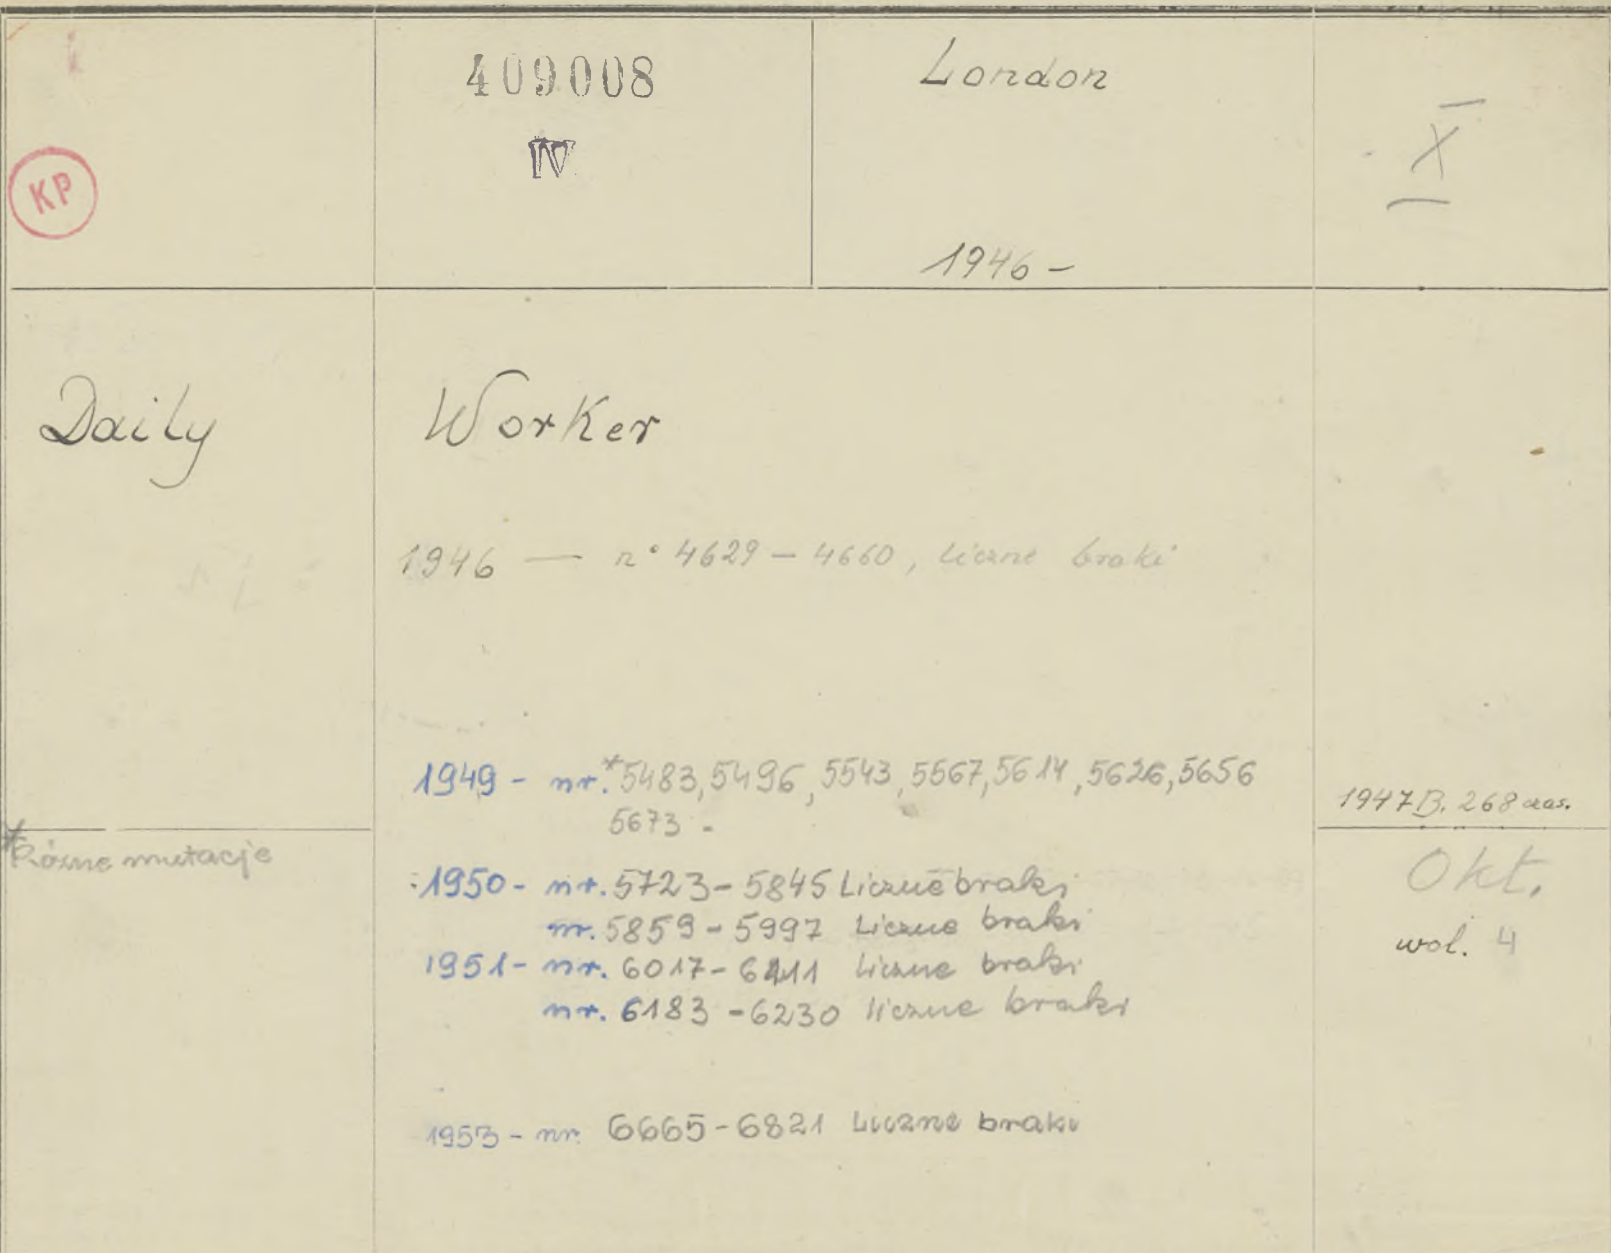 409008
IV
London
X
KP
1946 –
Daily Worker
1946 — n° 4629 – 4660, liczne braki
1949 - nr.*5483, 5496, 5543, 5567, 5614, 5626, 5656
5673 -
1947 B. 268 czas.
*Różne mutacje
1950 - nr. 5723 - 5845 Liczne braki
nr. 5859 - 5997 Liczne braki
1951 - nr. 6017 - liczne braki
nr. 6183 - 6230 liczne braki
1953 - nr. 6665 - 6821 Liczne braki
Okt.
wol. 4